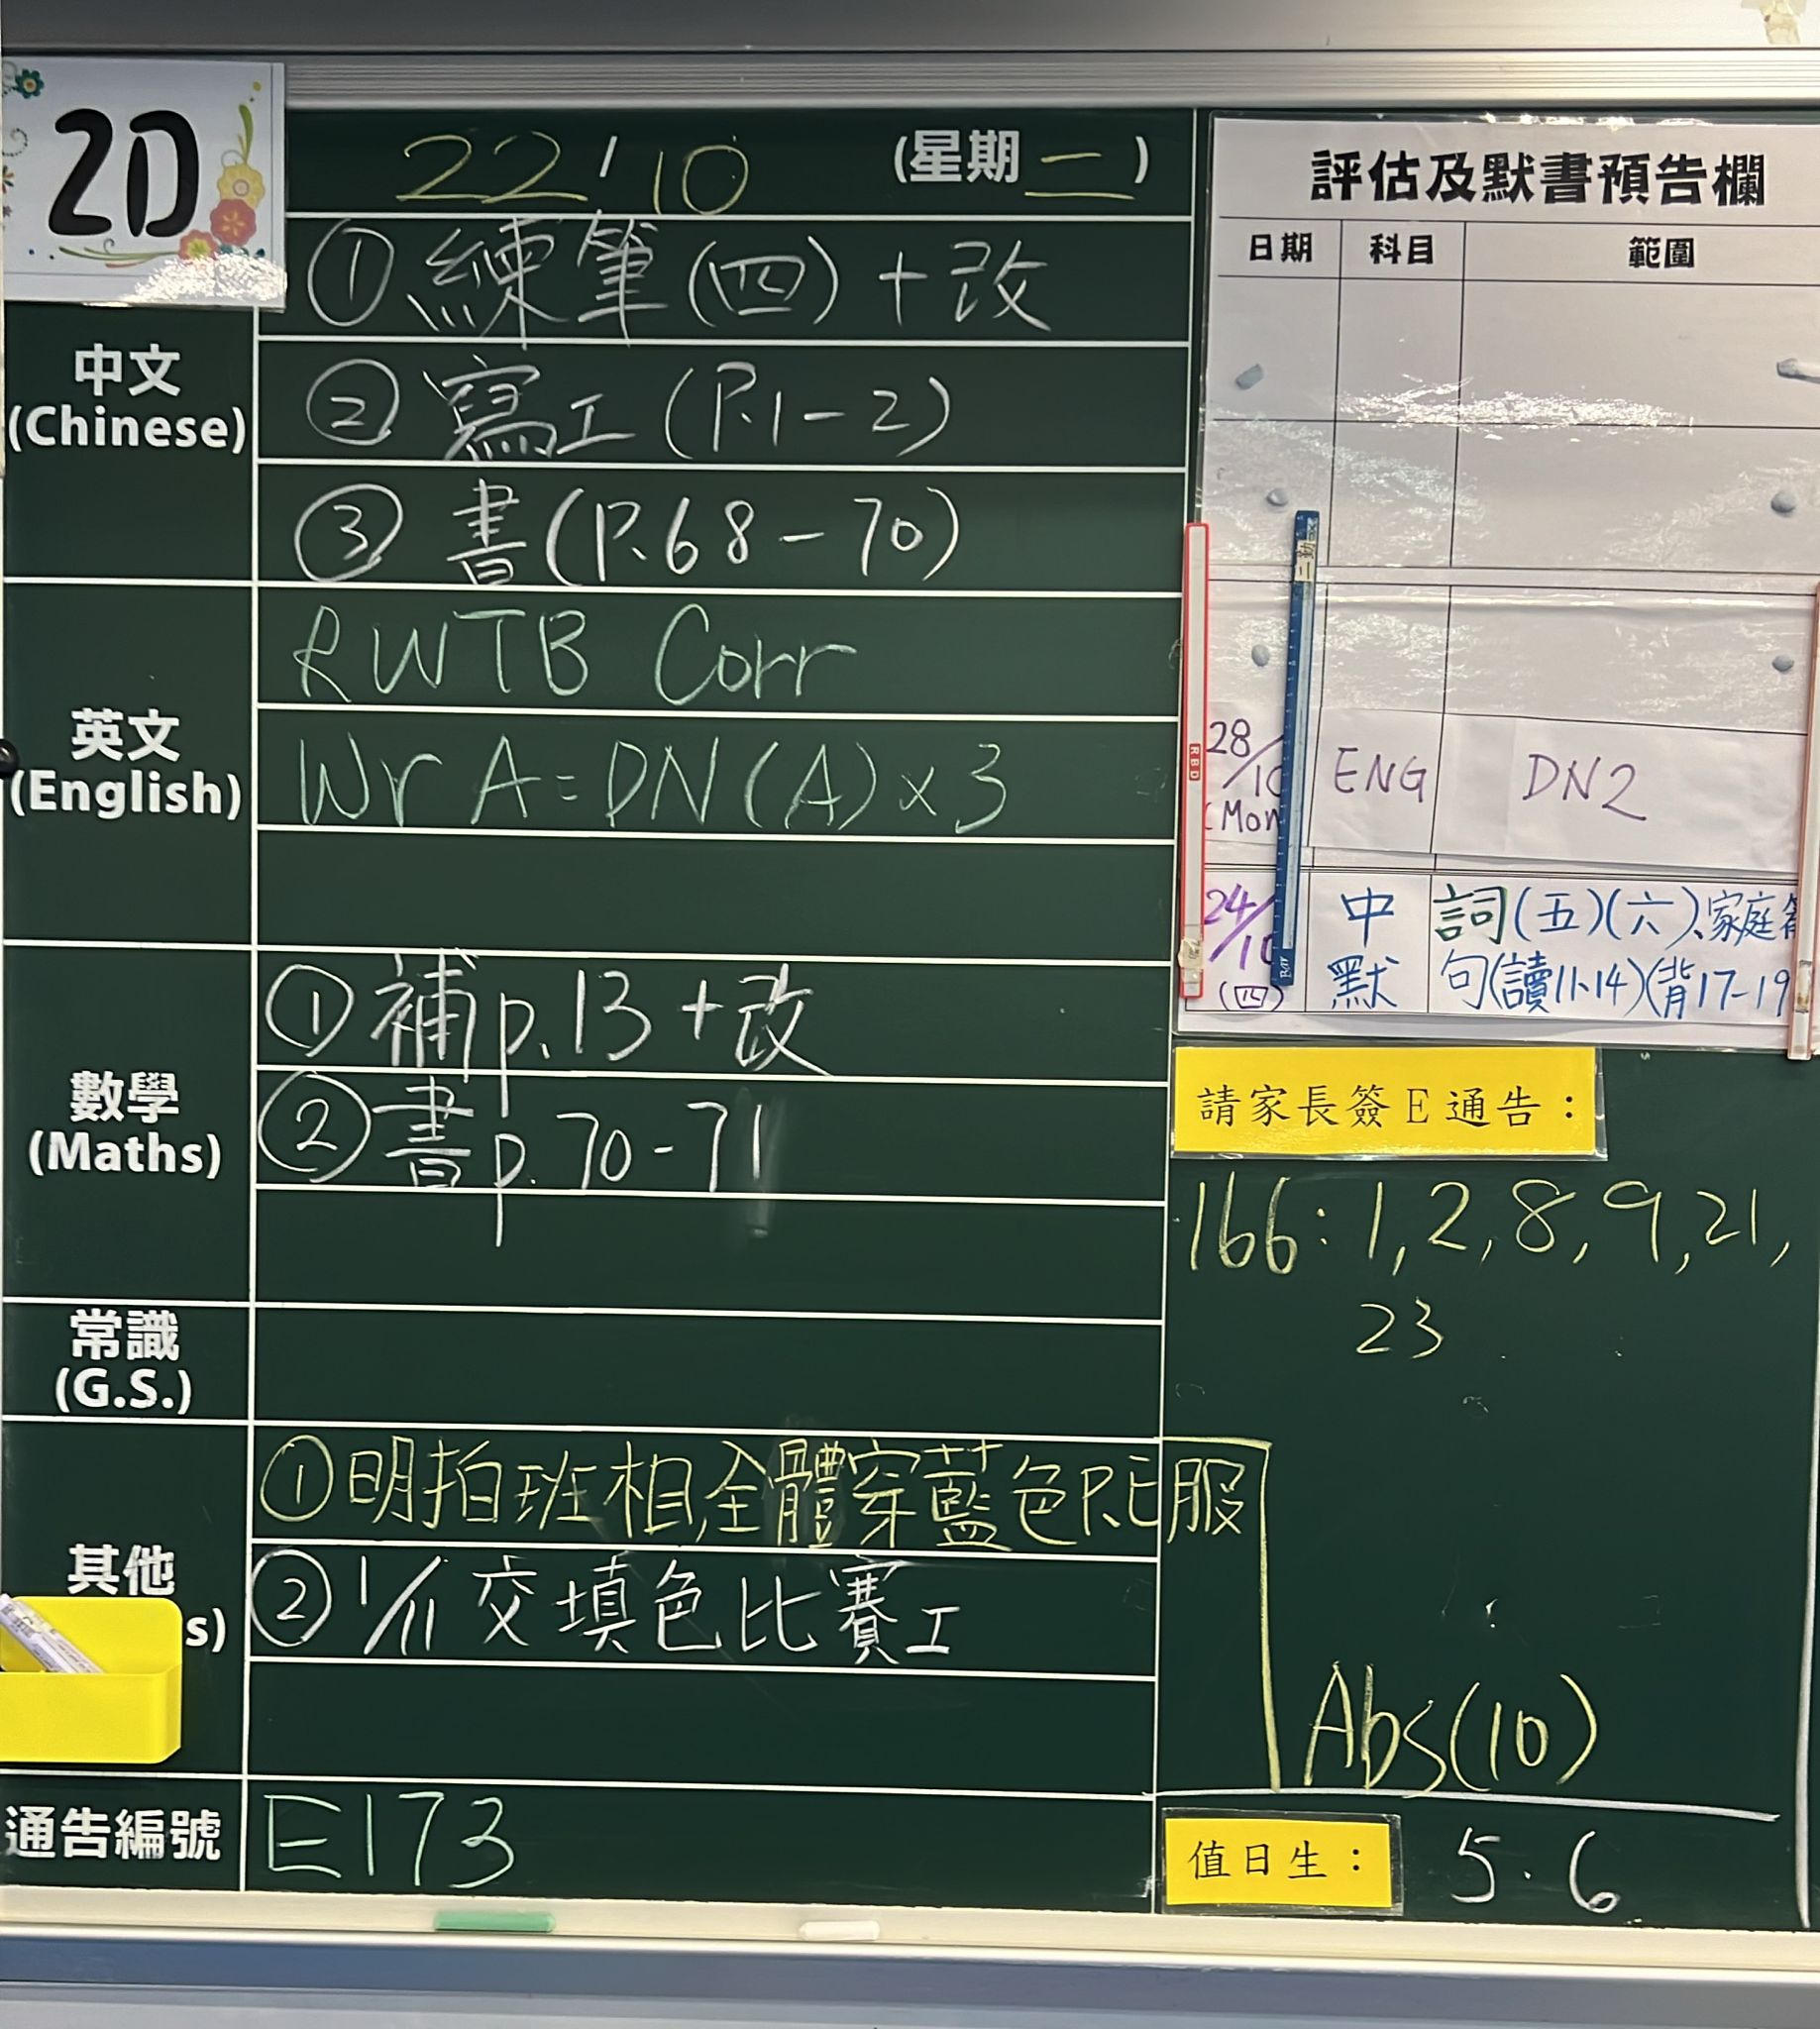 2D
22/10 (星期二)
中文
(Chinese)
① 練筆(四)+改
② 寫工(P.1-2)
③ 書(P.68-70)
英文
(English)
RWTB Corr
Wr A = DN(A)×3
數學
(Maths)
① 補p.13+改
② 書p.70-71
常識
(G.S.)
其他
s)
① 明拍班相,全體穿藍色P.E服
② 1/11 交填色比賽工
通告編號
E173
評估及默書預告欄
日期 科目 範圍
28/10 (Mon ENG DN2
24/10 (四) 中默 詞(五)(六)、家庭
句(讀11-14)(背17-19
請家長簽E通告：
166: 1, 2, 8, 9, 21,
23
Abs(10)
值日生： 5.6
RBD